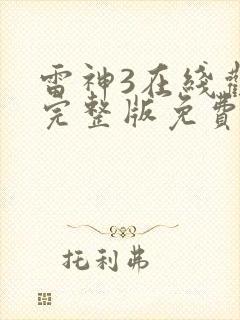 雷神3在线
完整版免費
托利弗